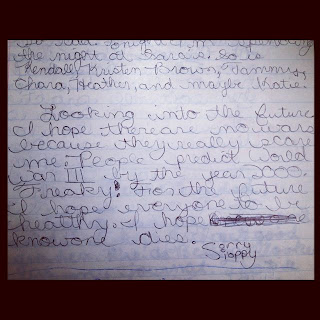 Tonight I'm spending
the night at Sara's. So is
Kendall, Kristen Brown, Tammy,
Chara, Heather, and maybe Katie.
Looking into the future
I hope there are no wars
because they really scare
me. People predict World
War III by the year 2000.
Freaky! For the future
I hope everyone to be
healthy. I hope
knowone dies. Sorry
Sloppy